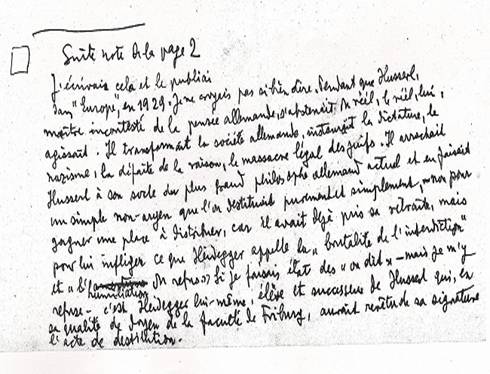 Suite note de la page 2
J'écrivais cela et le publiais
dans "Europe", en 1929. Je ne croyais pas si bien dire. Pendant que Husserl,
maître incontesté de la pensée allemande, s'abstenait du réel, le réel, lui,
agissait. Il transformait la société allemande, instaurait la dictature, le
nazisme, la défaite de la raison, le massacre légal des juifs. Il arrachait
Husserl à son socle du plus grand philosophe allemand actuel et en faisait
un simple non-aryen que l'on destituait purement et simplement, non pour
gagner une place à distribuer, car il avait déjà pris sa retraite, mais
pour lui infliger ce que Heidegger appelle la "brutalité de l'interdiction"
et "l'humiliation du refus". Si je faisais état des "on dit" – mais je m'y
refuse – c'est Heidegger lui-même, élève et successeur de Husserl qui, en
sa qualité de doyen de la faculté de Friburg, aurait revêtu de sa signature
l'acte de destitution.